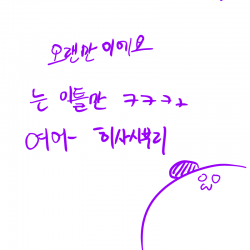 오랜만이에요
는 이틀만 ㅋㅋㅋㅋ
여어- 히사시부리